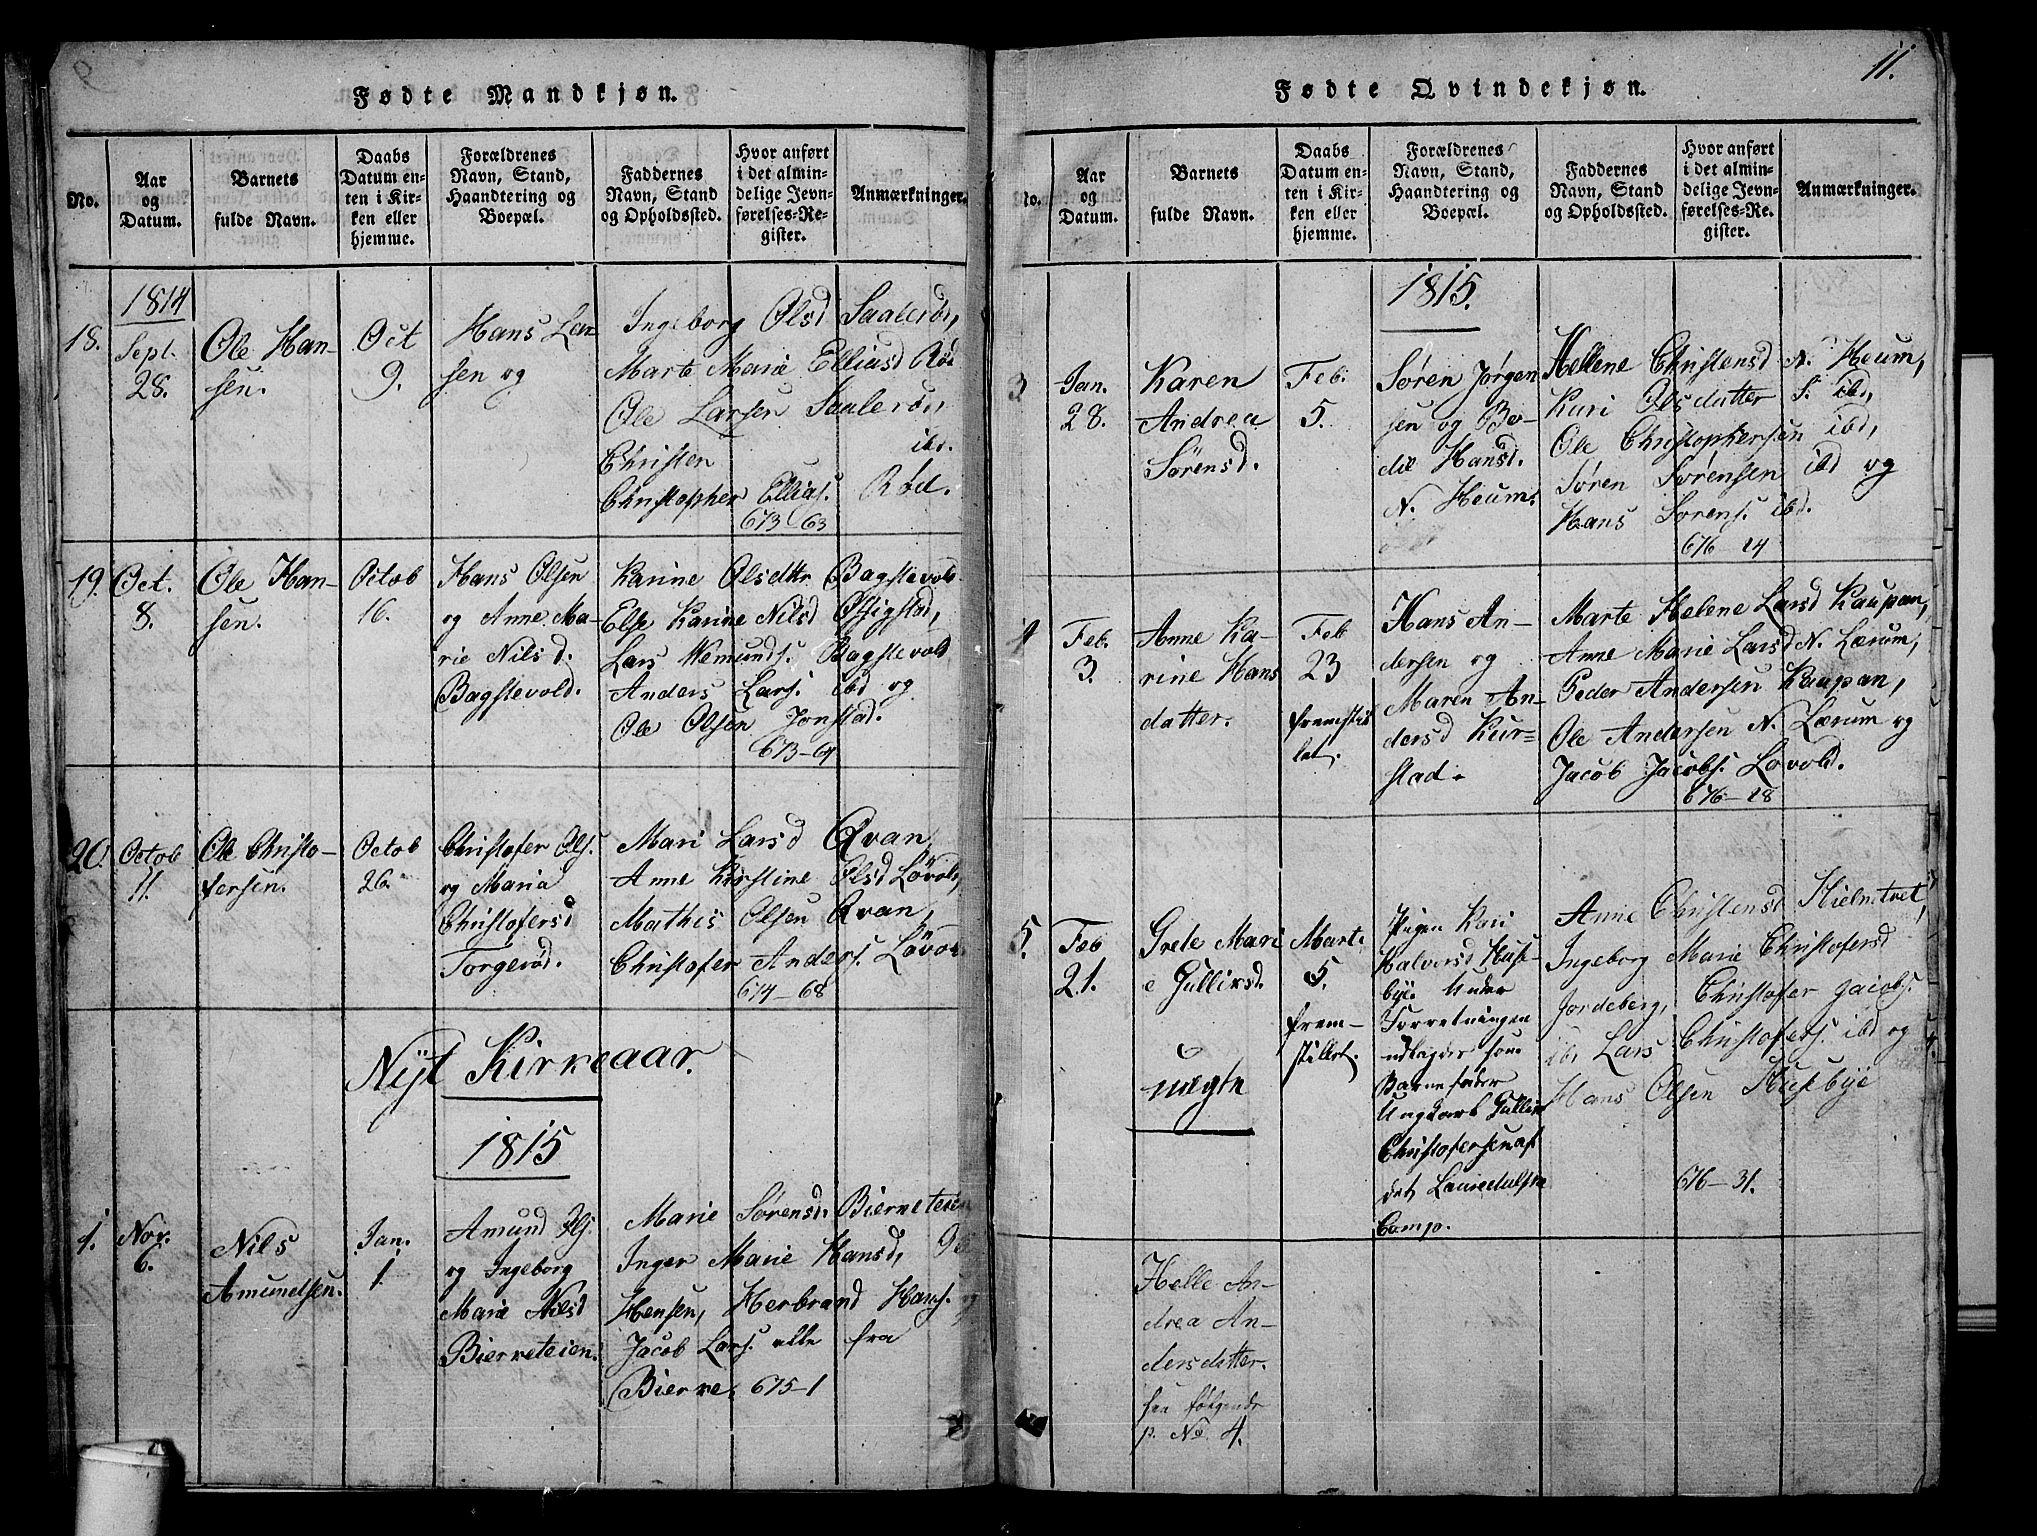 Fødte Mandkjøn.
No.
Aar
og
Datum.
Barnets
fulde Navn.
Daabs
Datum en-
ten i Kir-
ken eller
hjemme.
Forældrenes
Navn, Stand,
Haandtering og
Boepæl.
Faddernes
Navn, Stand
og Opholdssted.
Hvor anført
i det almin-
delige Jevn-
førelses-Re-
gister.
Anmærkninger.
1814
18.
Sept.
28.
Ole Han-
sen.
Oct
9.
Hans Lar
sen og
Ingeborg Olsd Saalerød,
Marte Marie Elliasd Rød
Ole Larsen Saulerød,
Christen ibd.
Christopher Ellias. Rød.
673-63
19.
Oct.
8.
Ole Han-
sen.
Octob
16.
Hans Olsen
og Anne Ma-
rie Nilsd.
Bagstevold.
Karine Olsdtr Bagstevold
Else Karine Nilsd
Lars Wemunds. Bagstevold
Anders Lars. ibd og
Ole Olsen Jonstad.
673-64
20.
Octob
11.
Ole Christo-
fersen.
Octob
26.
Christofer Ols.
og Maria
Christofersd
Torgerød.
Mari Larsd Qvan,
Anne Kirstine Olsd Løvold,
Mathis Olsen Qvan,
Christofer Anders. Løvold
674-68
Nyt Kirkeaar.
1815
1.
Nov.
6.
Nils
Amundsen.
Jan.
1.
Amund Ols.
og Ingeborg
Marie Nilsd
Bierketeien.
Marie Sørensd. Bierketeien
Inger Marie Hansd,
Hensen, Herbrand Hans. og
Jacob Lars. alle fra
Bierke. 675-1
11.
Fødte Qvindekjøn.
No.
Aar
og
Datum.
Barnets
fulde Navn.
Daabs
Datum en-
ten i Kir-
ken eller
hjemme.
Forældrenes
Navn, Stand,
Haandtering og
Boepæl.
Faddernes
Navn, Stand
og Opholdsted.
Hvor anført
i det almin-
delige Jevn-
førelses-Re-
gister.
Anmærkninger.
1815.
3
Jan.
28.
Karen
Andrea
Sörensd.
Feb.
5.
Søren Jørgen
sen og Bo-
dil Hansd.
N. Heum.
Hellene Christensd N. Heum,
Kari Olsdatter S. ibd,
Ole Christophersen ibd,
Søren Sørensen ibd og
Hans Sørens. ibd.
676-24
4
Feb.
3.
Anne Ka-
rine Hans
datter.
Feb
23
fremstil
let.
Hans An-
dersen og
Maren An-
dersd Kur-
stad.
Marte Helene Larsd Kaupan,
Anne Marie Larsd N. Lærum,
Peder Andersen Kaupan,
Ole Andersen N. Lærum og
Jacob Jacobs. Løvold.
676-28
5.
Feb
21.
Grete Mari
e Gullixsd.
uægte
Marts
5.
frem-
stillet.
Pigen Kari
Halvorsd Huse-
bye. Under
Forretningen
udlagdes som
Barnefader
Ungkarl Gullix
Christofersen af
det Lauredalske
Comp.
Anne Christensd Hielmtvet,
Ingeborg Marie Christofersd
Jordeberg, Christofer Jacobs.
ib. Lars Christofers. ibd og
Hans Olsen Husebye
676-31.
Helle An-
drea An-
dersdatter.
see følgende
p. No 4.